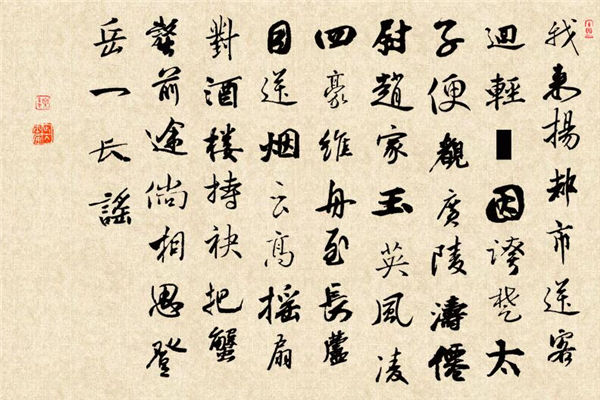 我來揚都市送客
迴輕■因誇楚太
子便觀廣陵濤僊
尉趙家玉英風凌
四豪維舟至長蘆
目送烟云高搖扇
對酒樓持袂把蟹
螯前途倘相思登
岳一長謠